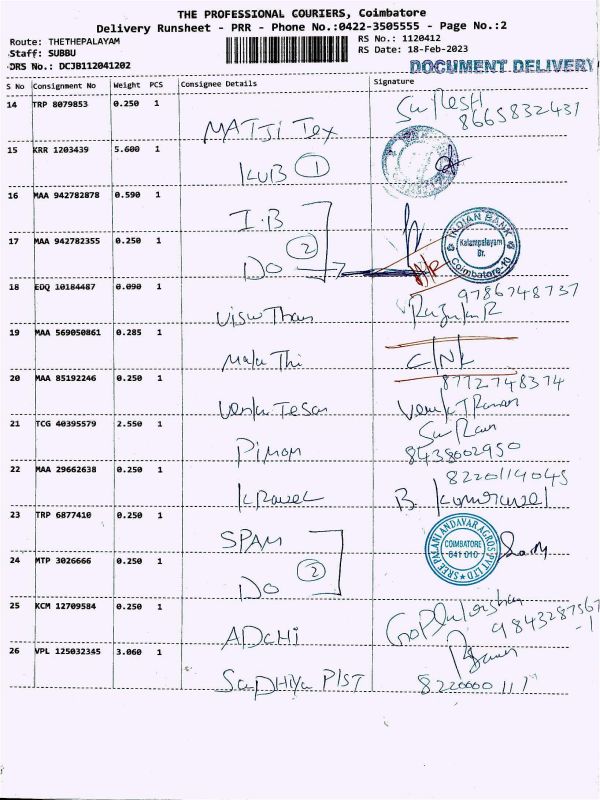 THE PROFESSIONAL COURIERS, Coimbatore
Delivery Runsheet - PRR - Phone No.:0422-3505555 - Page No.:2
Route: THETHEPALAYAM RS No.: 1120412
Staff: SUBBU RS Date: 18-Feb-2023
DRS No.: DCJB112041202 DOCUMENT DELIVERY
S No Consignment No Weight PCS Consignee Details Signature
14 TRP 8079853 0.250 1 SuResH
8665832431
MATJI Tex
15 KRR 1203439 5.600 1
KUB 1
16 MAA 942782878 0.590 1
I.B
INDIAN BANK
17 MAA 942782355 0.250 1 2 Kalampalayam
Br.
DO Coimbatore-10
18 EDQ 10184487 0.090 1 9786748737
Viswthan
19 MAA 569050861 0.285 1
Mala Thi C/NL
20 MAA 85192246 0.250 1 8772748374
VenkaTesan
21 TCG 40395579 2.550 1
Piman 8438002950
22 MAA 29662638 0.250 1 8220114045
B.
23 TRP 6877410 0.250 1 SREE PALANI ANDAVAR AGROS PVT LTD
SPAM COIMBATORE
641 010
24 MTP 3026666 0.250 1
DO 2
25 KCM 12709584 0.250 1
ADCHI 9843287567
-1
26 VPL 125032345 3.060 1
SaDHiya PlST 8220000111